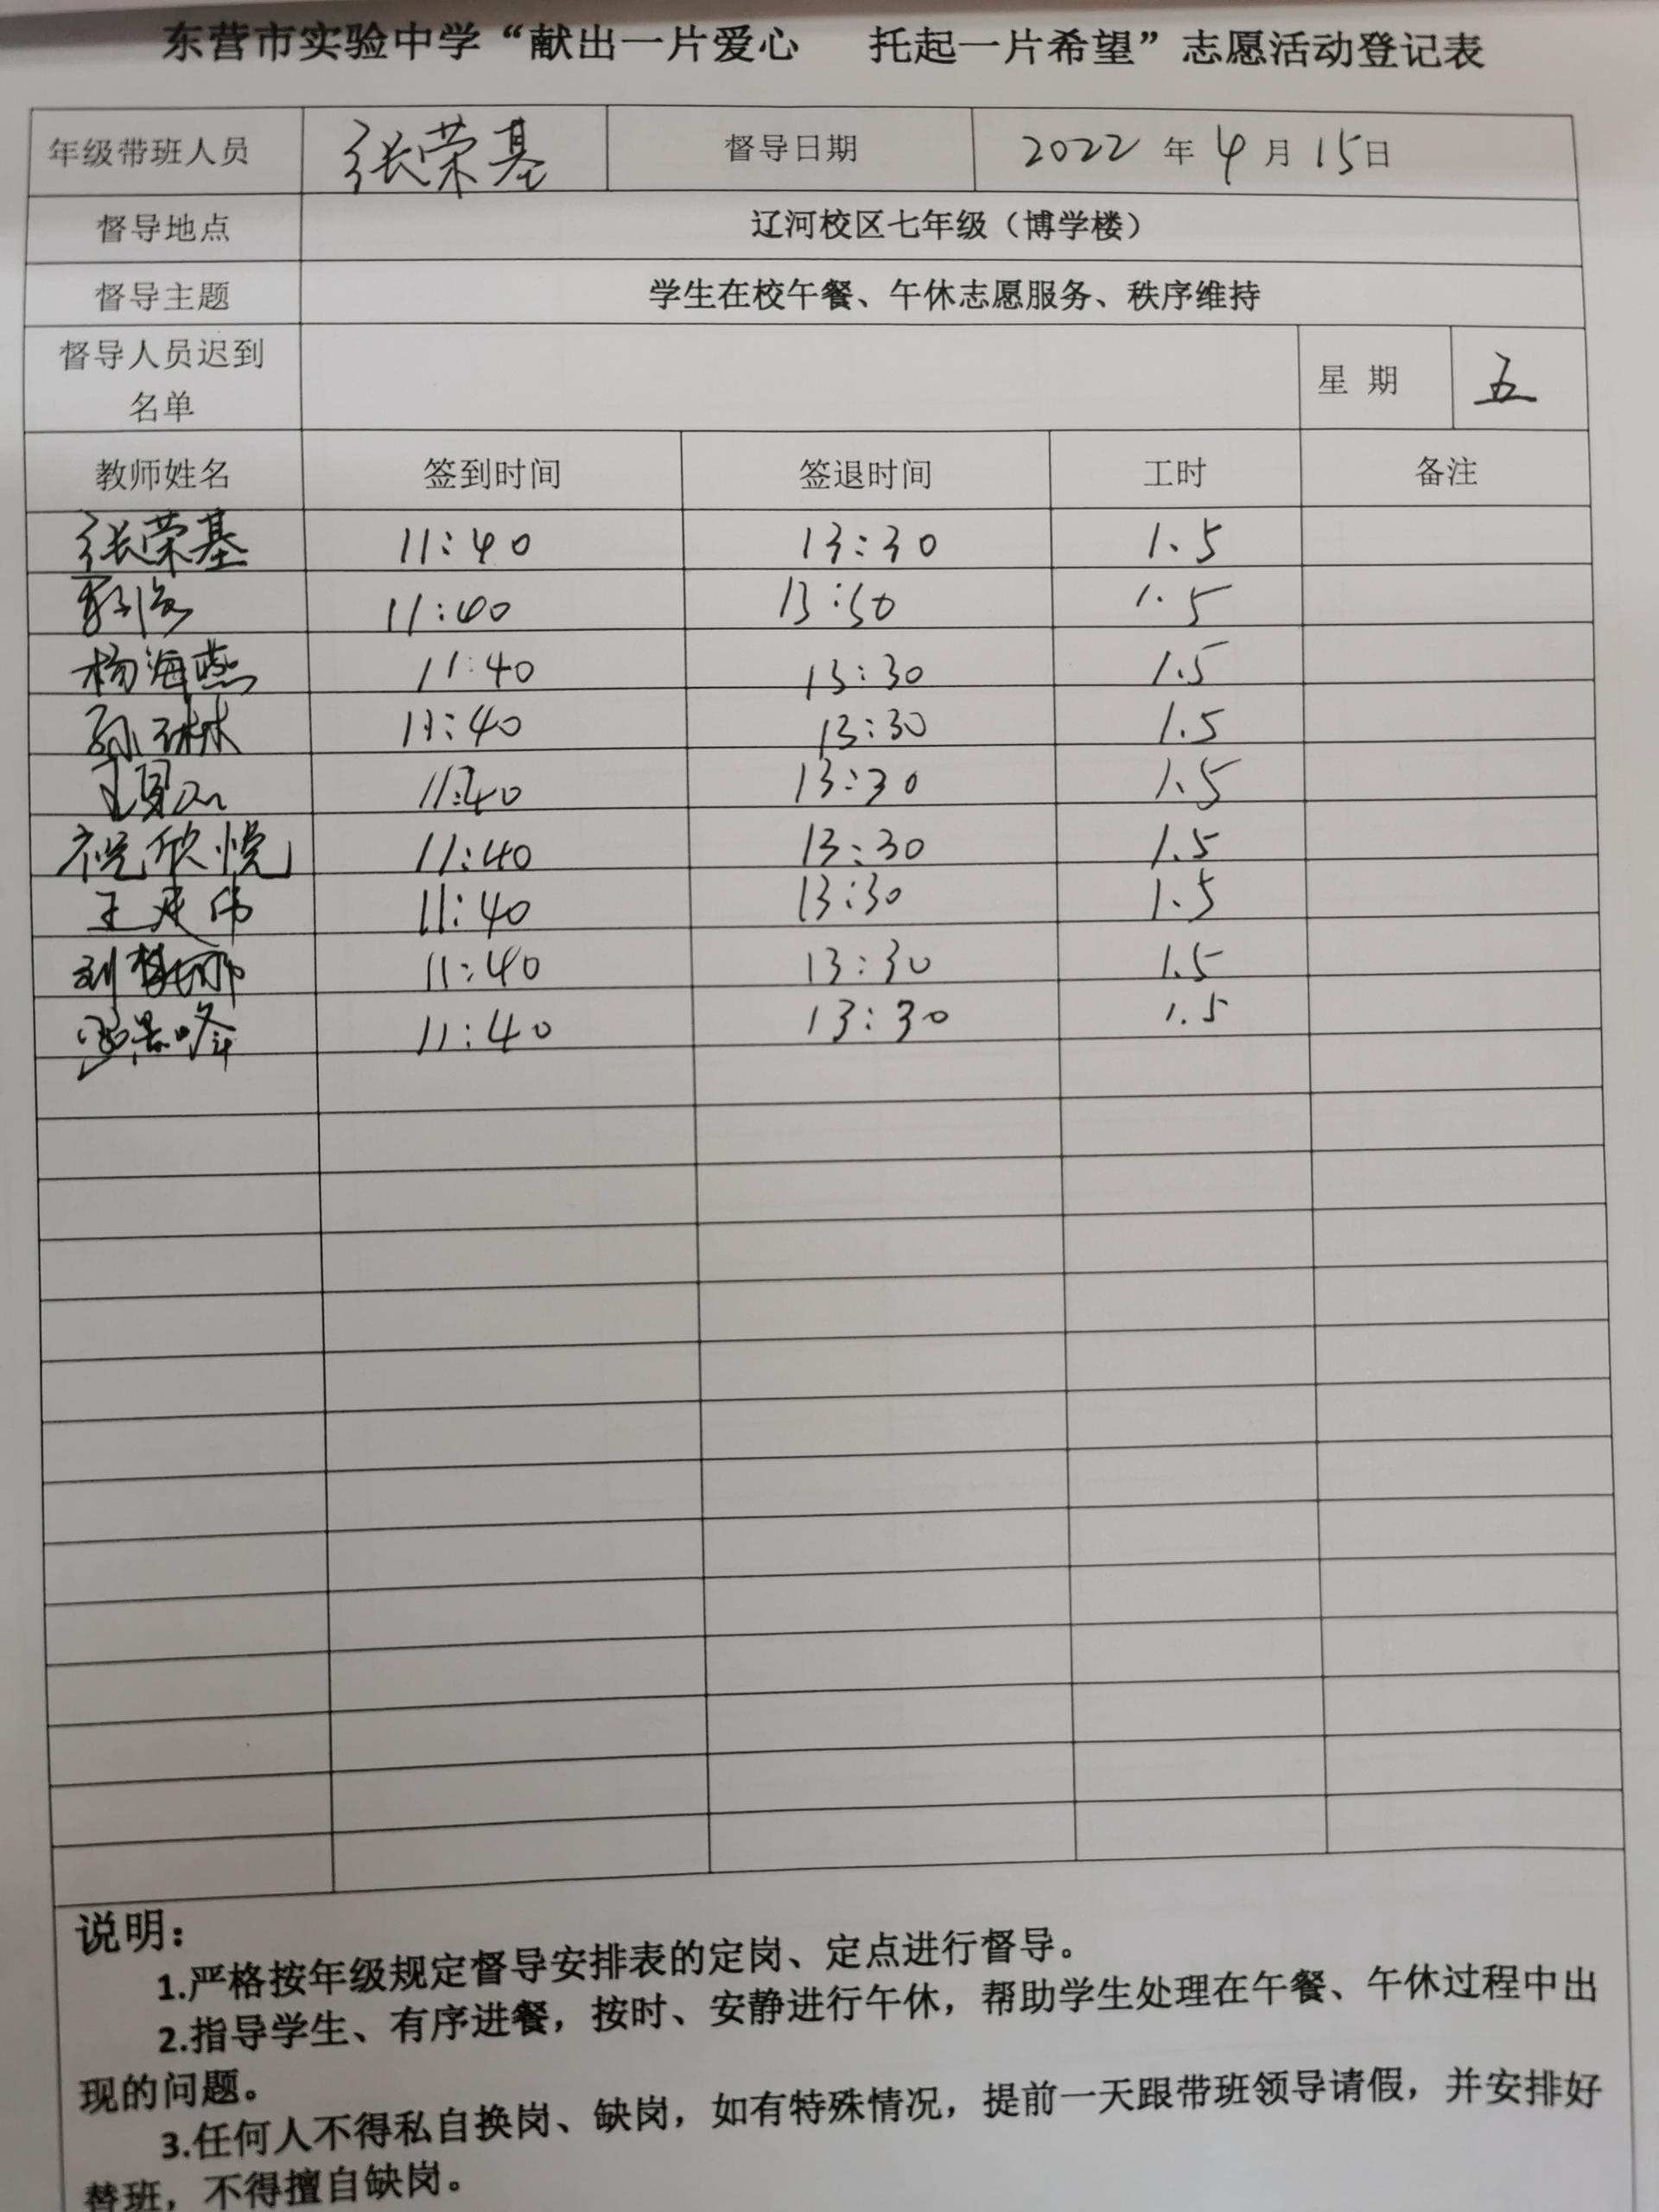 东营市实验中学“献出一片爱心 托起一片希望”志愿活动登记表
年级带班人员 张荣基 督导日期 2022 年 4 月 15 日
督导地点 辽河校区七年级（博学楼）
督导主题 学生在校午餐、午休志愿服务、秩序维持
督导人员迟到
名单
星 期 五
教师姓名 签到时间 签退时间 工时 备注
张荣基 11:40 13:30 1.5
11:40 13:30 1.5
杨海燕 11:40 13:30 1.5
孙琳琳 11:40 13:30 1.5
11:40 13:30 1.5
祝欣悦 11:40 13:30 1.5
王建伟 11:40 13:30 1.5
刘 11:40 13:30 1.5
11:40 13:30 1.5
说明：
1.严格按年级规定督导安排表的定岗、定点进行督导。
2.指导学生、有序进餐，按时、安静进行午休，帮助学生处理在午餐、午休过程中出
现的问题。
3.任何人不得私自换岗、缺岗，如有特殊情况，提前一天跟带班领导请假，并安排好
替班，不得擅自缺岗。